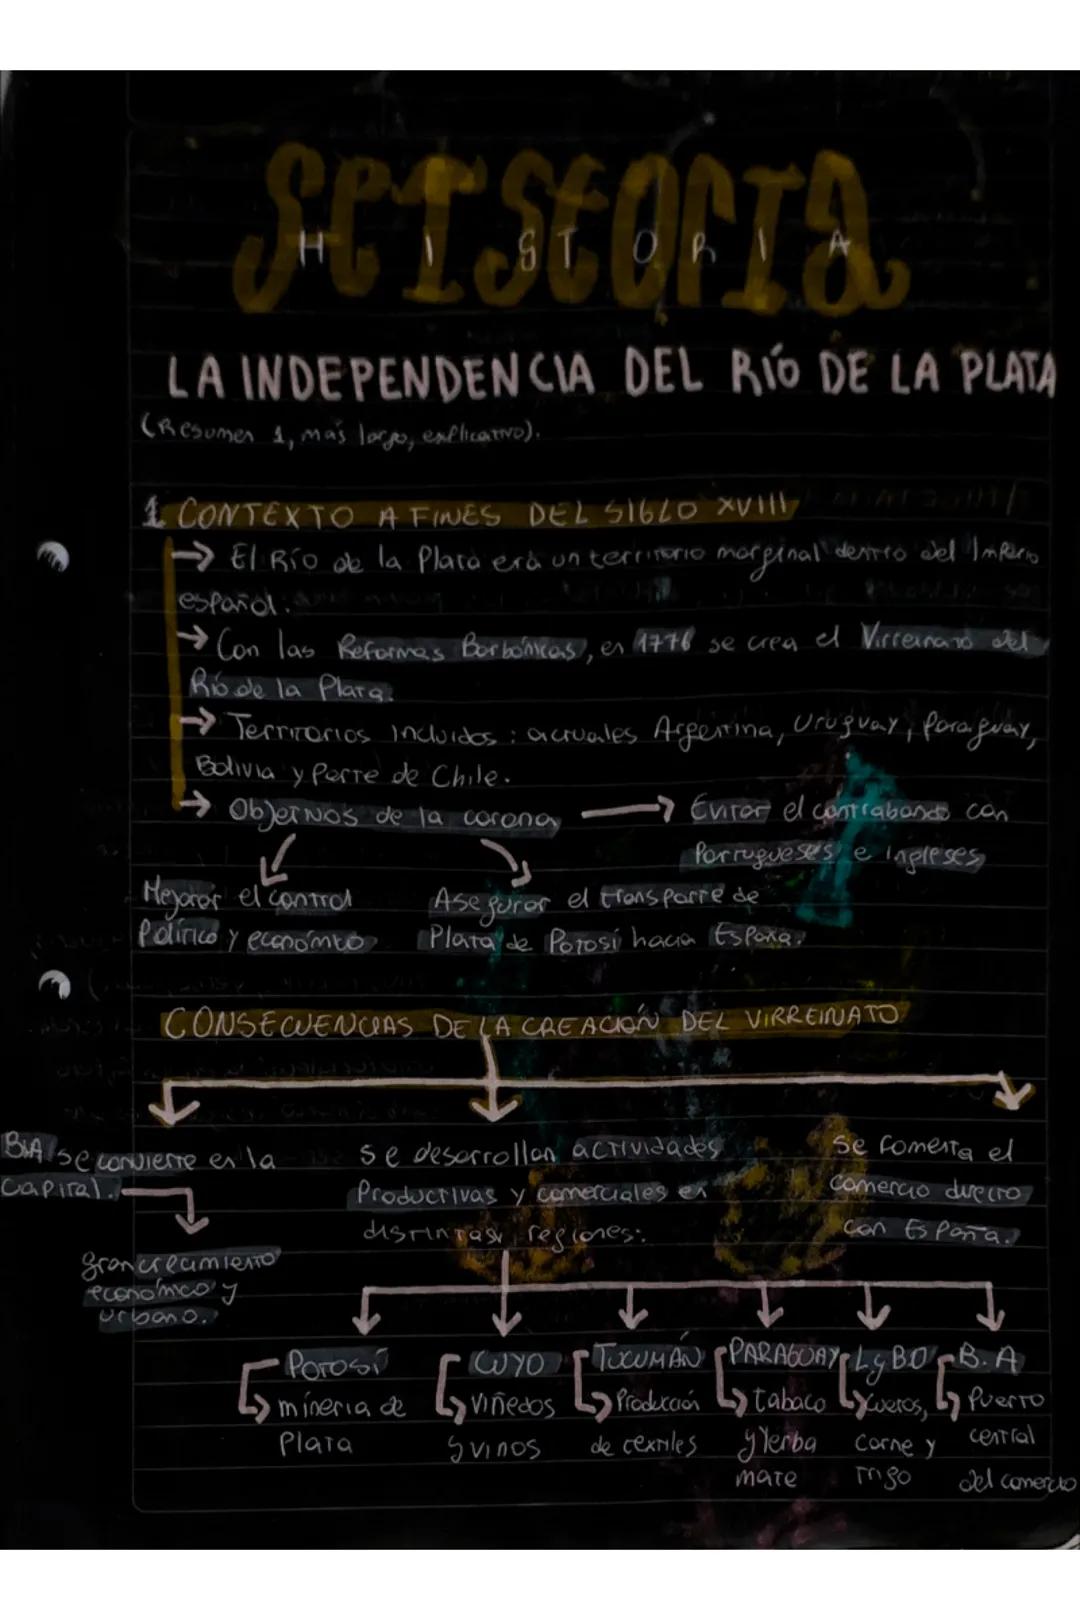 HISTORIA
LA INDEPENDENCIA DEL RÍO DE LA PLATA
(Resumen 1, más largo, explicativo).
1 CONTEXTO A FINES DEL SIGLO XVIII
→ El Río de la Plata era un territorio marginal dentro del Imperio
español.
→ Con las Reformas Borbónicas, en 1776 se crea el Virreinato del
Río de la Plata.
→ Territorios incluidos: actuales Argentina, Uruguay, Paraguay,
Bolivia y parte de Chile.
→ Objetivos de la corona → Evitar el contrabando con
Portugueses e ingleses
Mejorar el control
Político y económico
Asegurar el transporte de
Plata de Potosí hacia España.
CONSECUENCIAS DE LA CREACIÓN DEL VIRREINATO
BsA se convierte en la
Capital.
gran crecimiento
económico y
urbano.
se desarrollan actividades
Productivas y comerciales en
distintas regiones:
Se fomenta el
comercio directo
con España.
POTOSÍ
minería de
Plata
CUYO
Viñedos
y vinos
TUCUMÁN
Producción
de textiles
PARAGUAY
tabaco
y Yerba
mate
L y BO
cueros,
Carne y
trigo
B.A
Puerto
central
del comercio